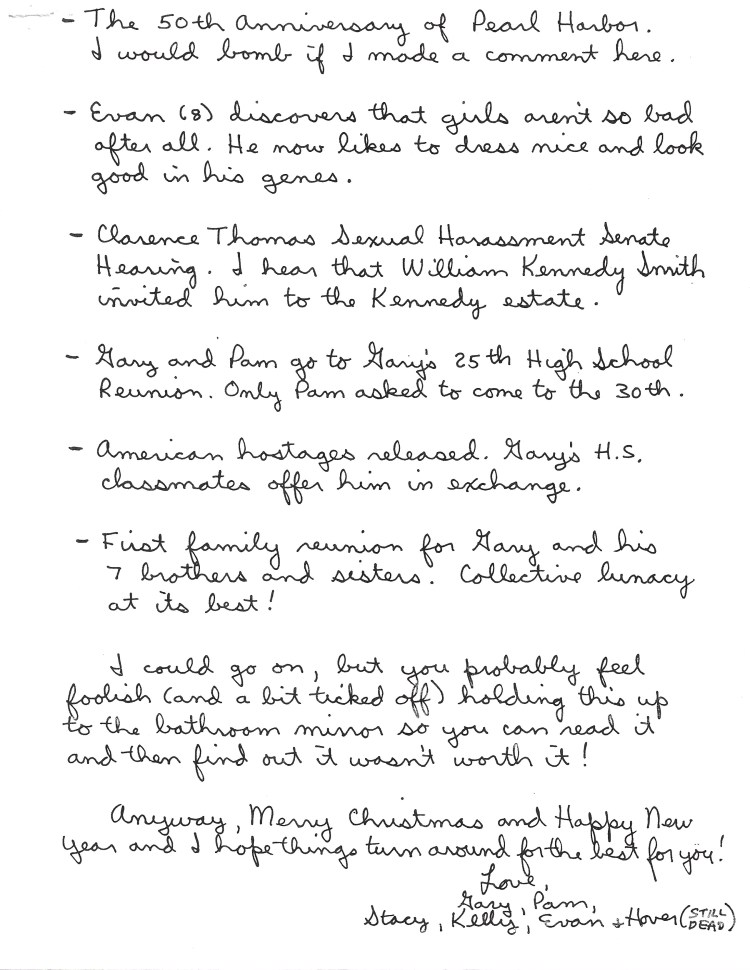 - The 50th anniversary of Pearl Harbor.
I would bomb if I made a comment here.
- Evan (8) discovers that girls aren't so bad
after all. He now likes to dress nice and look
good in his genes.
- Clarence Thomas Sexual Harassment Senate
Hearing. I hear that William Kennedy Smith
invited him to the Kennedy estate.
- Gary and Pam go to Gary's 25th High School
Reunion. Only Pam asked to come to the 30th.
- American hostages released. Gary's H.S.
classmates offer him in exchange.
- First family reunion for Gary and his
7 brothers and sisters. Collective lunacy
at its best!
I could go on, but you probably feel
foolish (and a bit ticked off) holding this up
to the bathroom mirror so you can read it
and then find out it wasn't worth it!
Anyway, Merry Christmas and Happy New
Year and I hope things turn around for the best for you!
Love,
Gary, Pam,
Stacy, Kelly, Evan + Hover (STILL
DEAD)